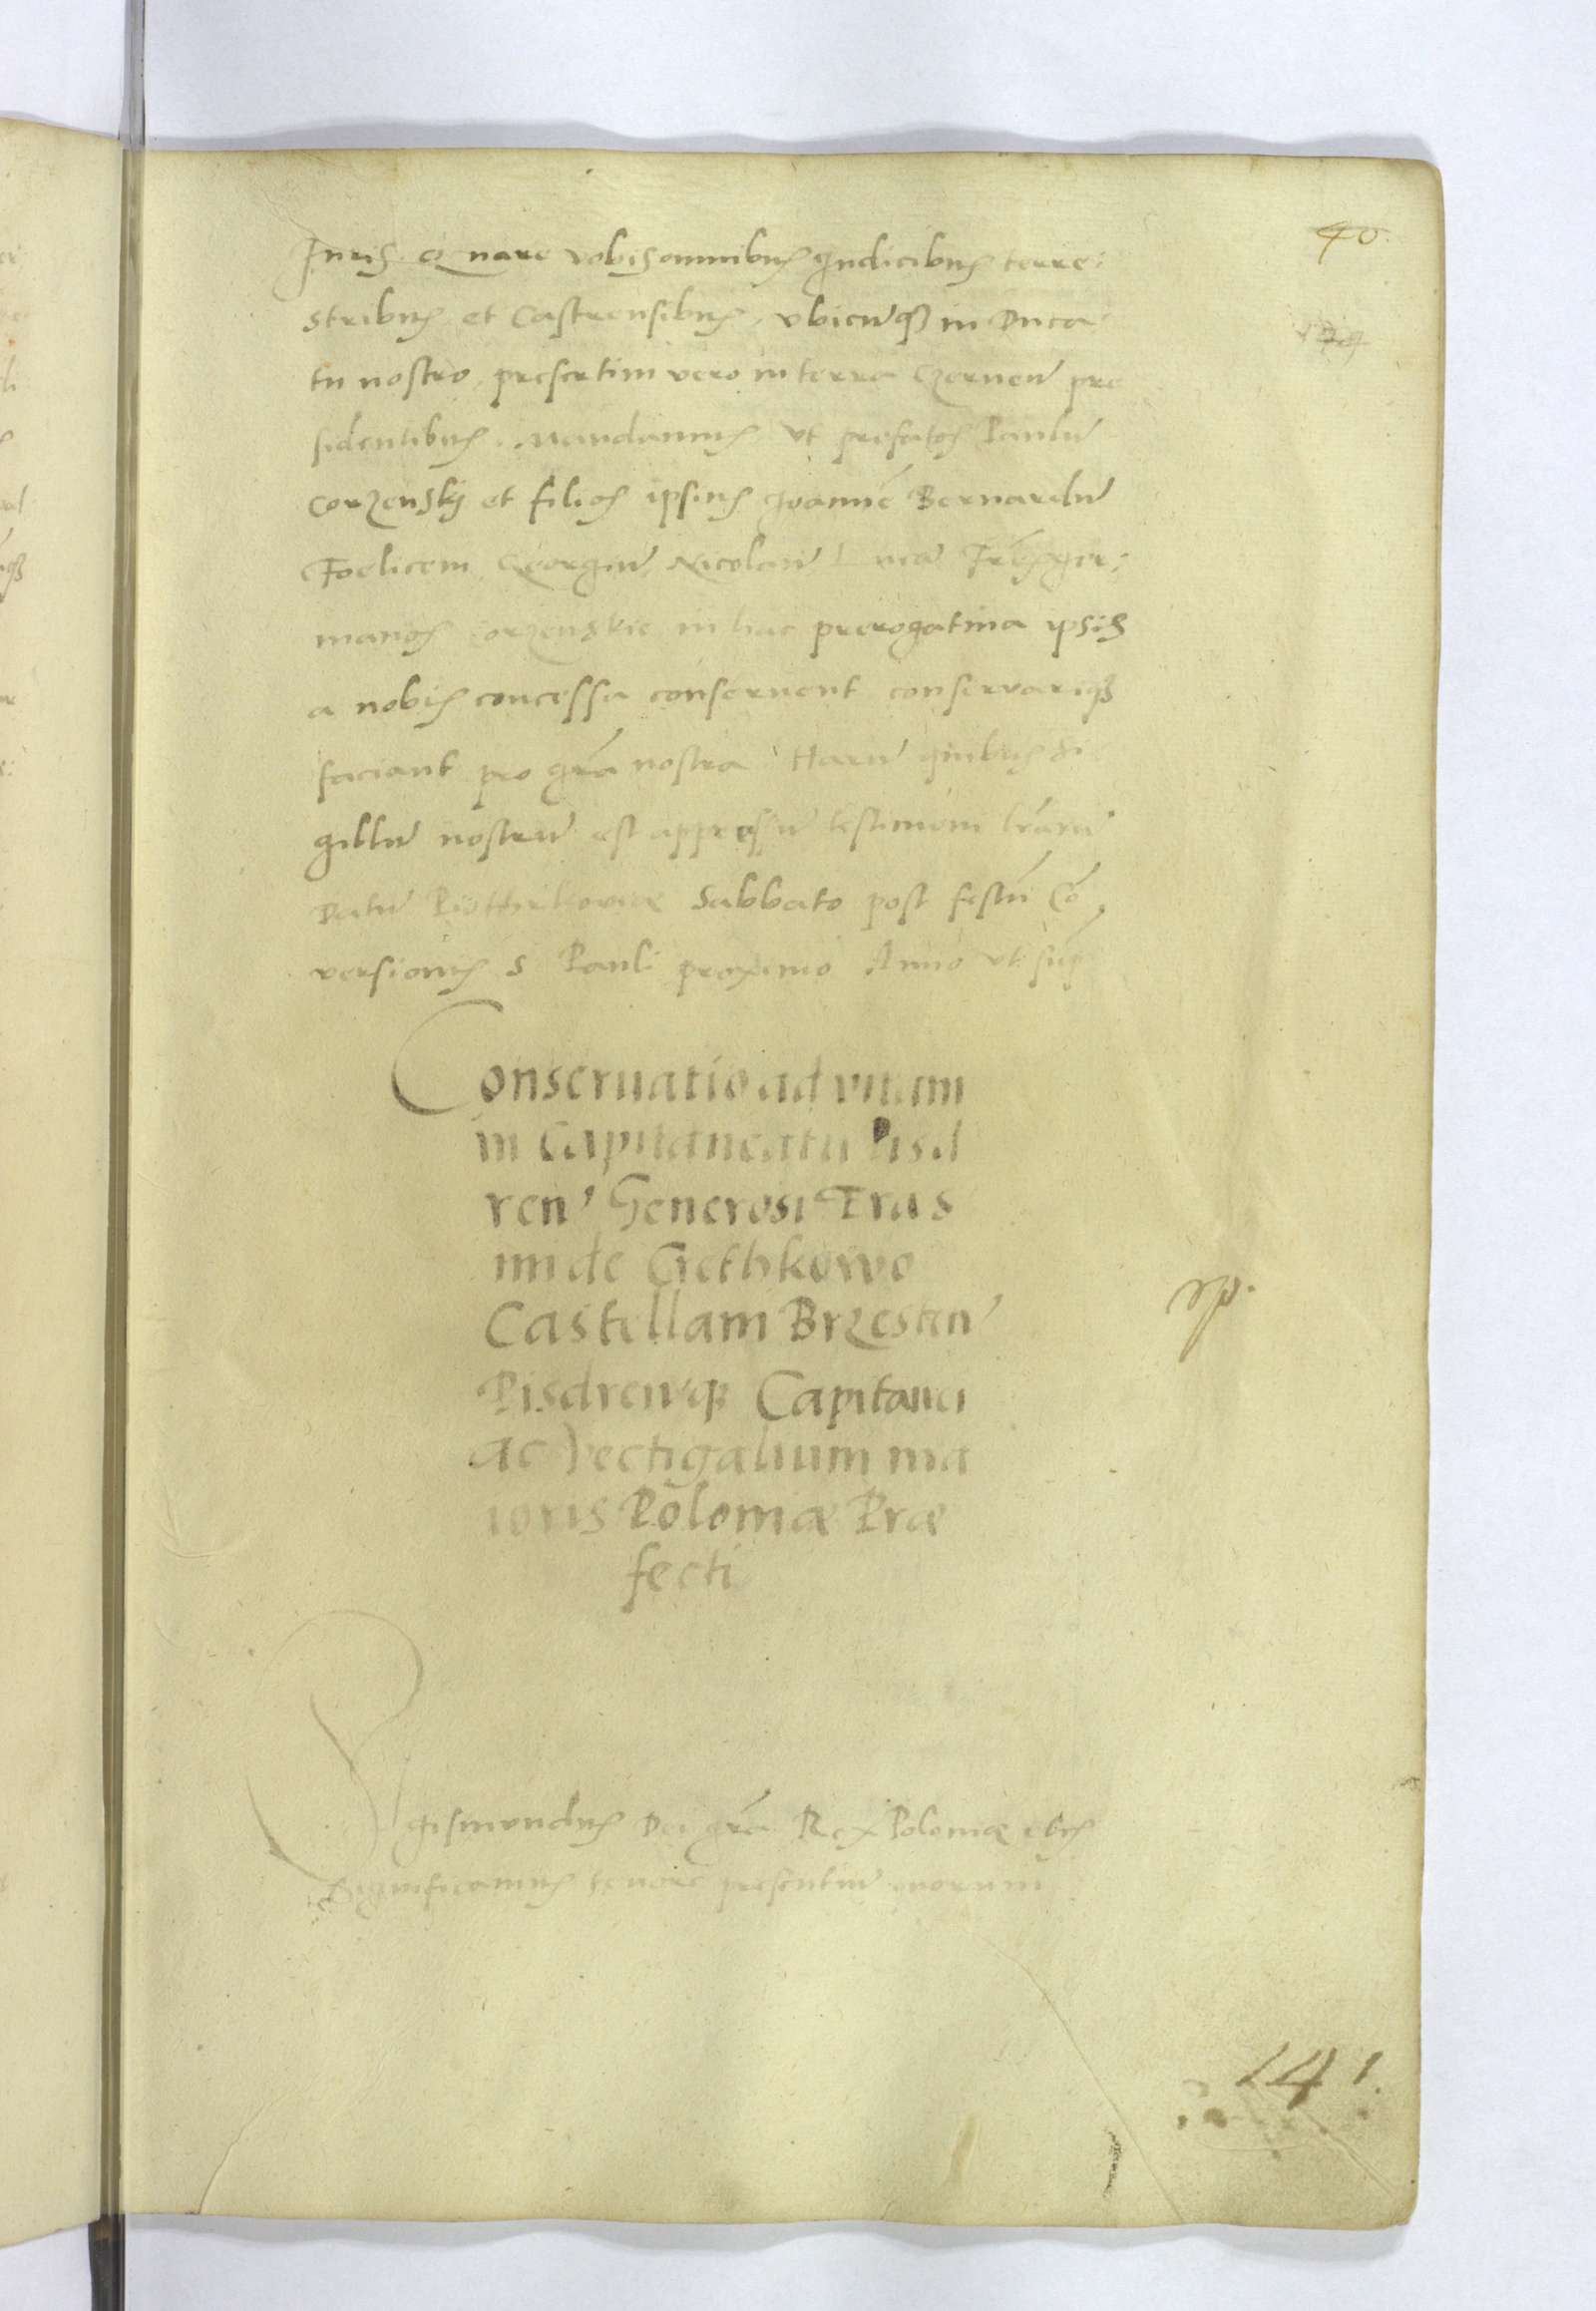 40.
Juris. Quare vobis omnibus Judicibus terre:
stribus et Castrensibus, vbicūq̃ in Duca
tu nostro, presertim vero in terra Czernen̄ pre
sidentibus. mandamus vt prefatos Paulū
Corzensky et filios ipsius Joannē Bernardū
Foelicem, Georgiū, Nicolaū Lucā Frēs ger:
manos Corzenskie in hac prerogatiua ipsis
a nobis concessa conseruent conservariq̃
faciant pro grā nostra Harū quibus si
gillū nostrū est appressū testimoni lrārū
Datū Piotrkoviæ Sabbato post festū Cō
versionis S Pauli proximo Anno vt sup
Conseruatio ad vitam
in Capitaneatu Pisd
ren' Generosi Eras
mi de Crethkowo
Castellani Brzesten'
Pisdren'q̃ Capitanei
ac Vectigalium ma
ioris Poloniæ Præ
fecti
Sigismundus Dei grā Rex Poloniæ etc
Significamus tenore presentiū quorum
141.